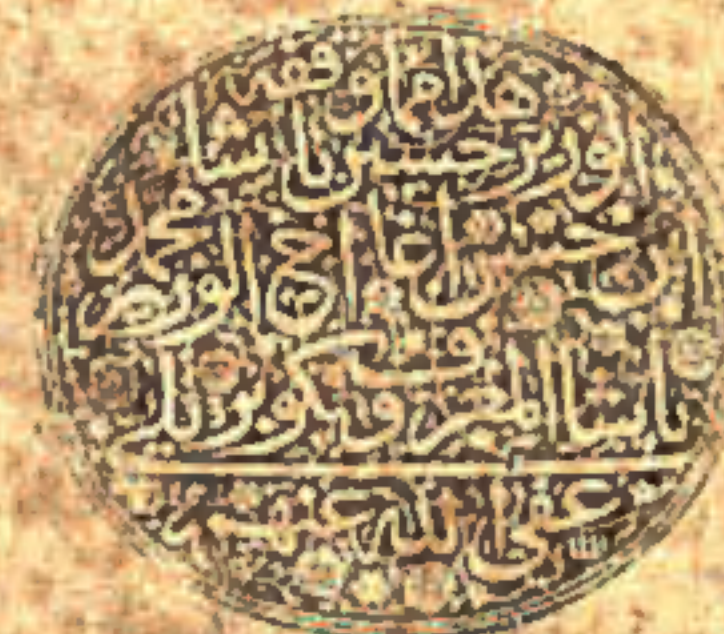 هذا ما وقفه
الوزير حسين باشا
ابن حسن اغا اخ الوزير محمد
باشا المعروف بكوپريلي
عفى الله عنهم